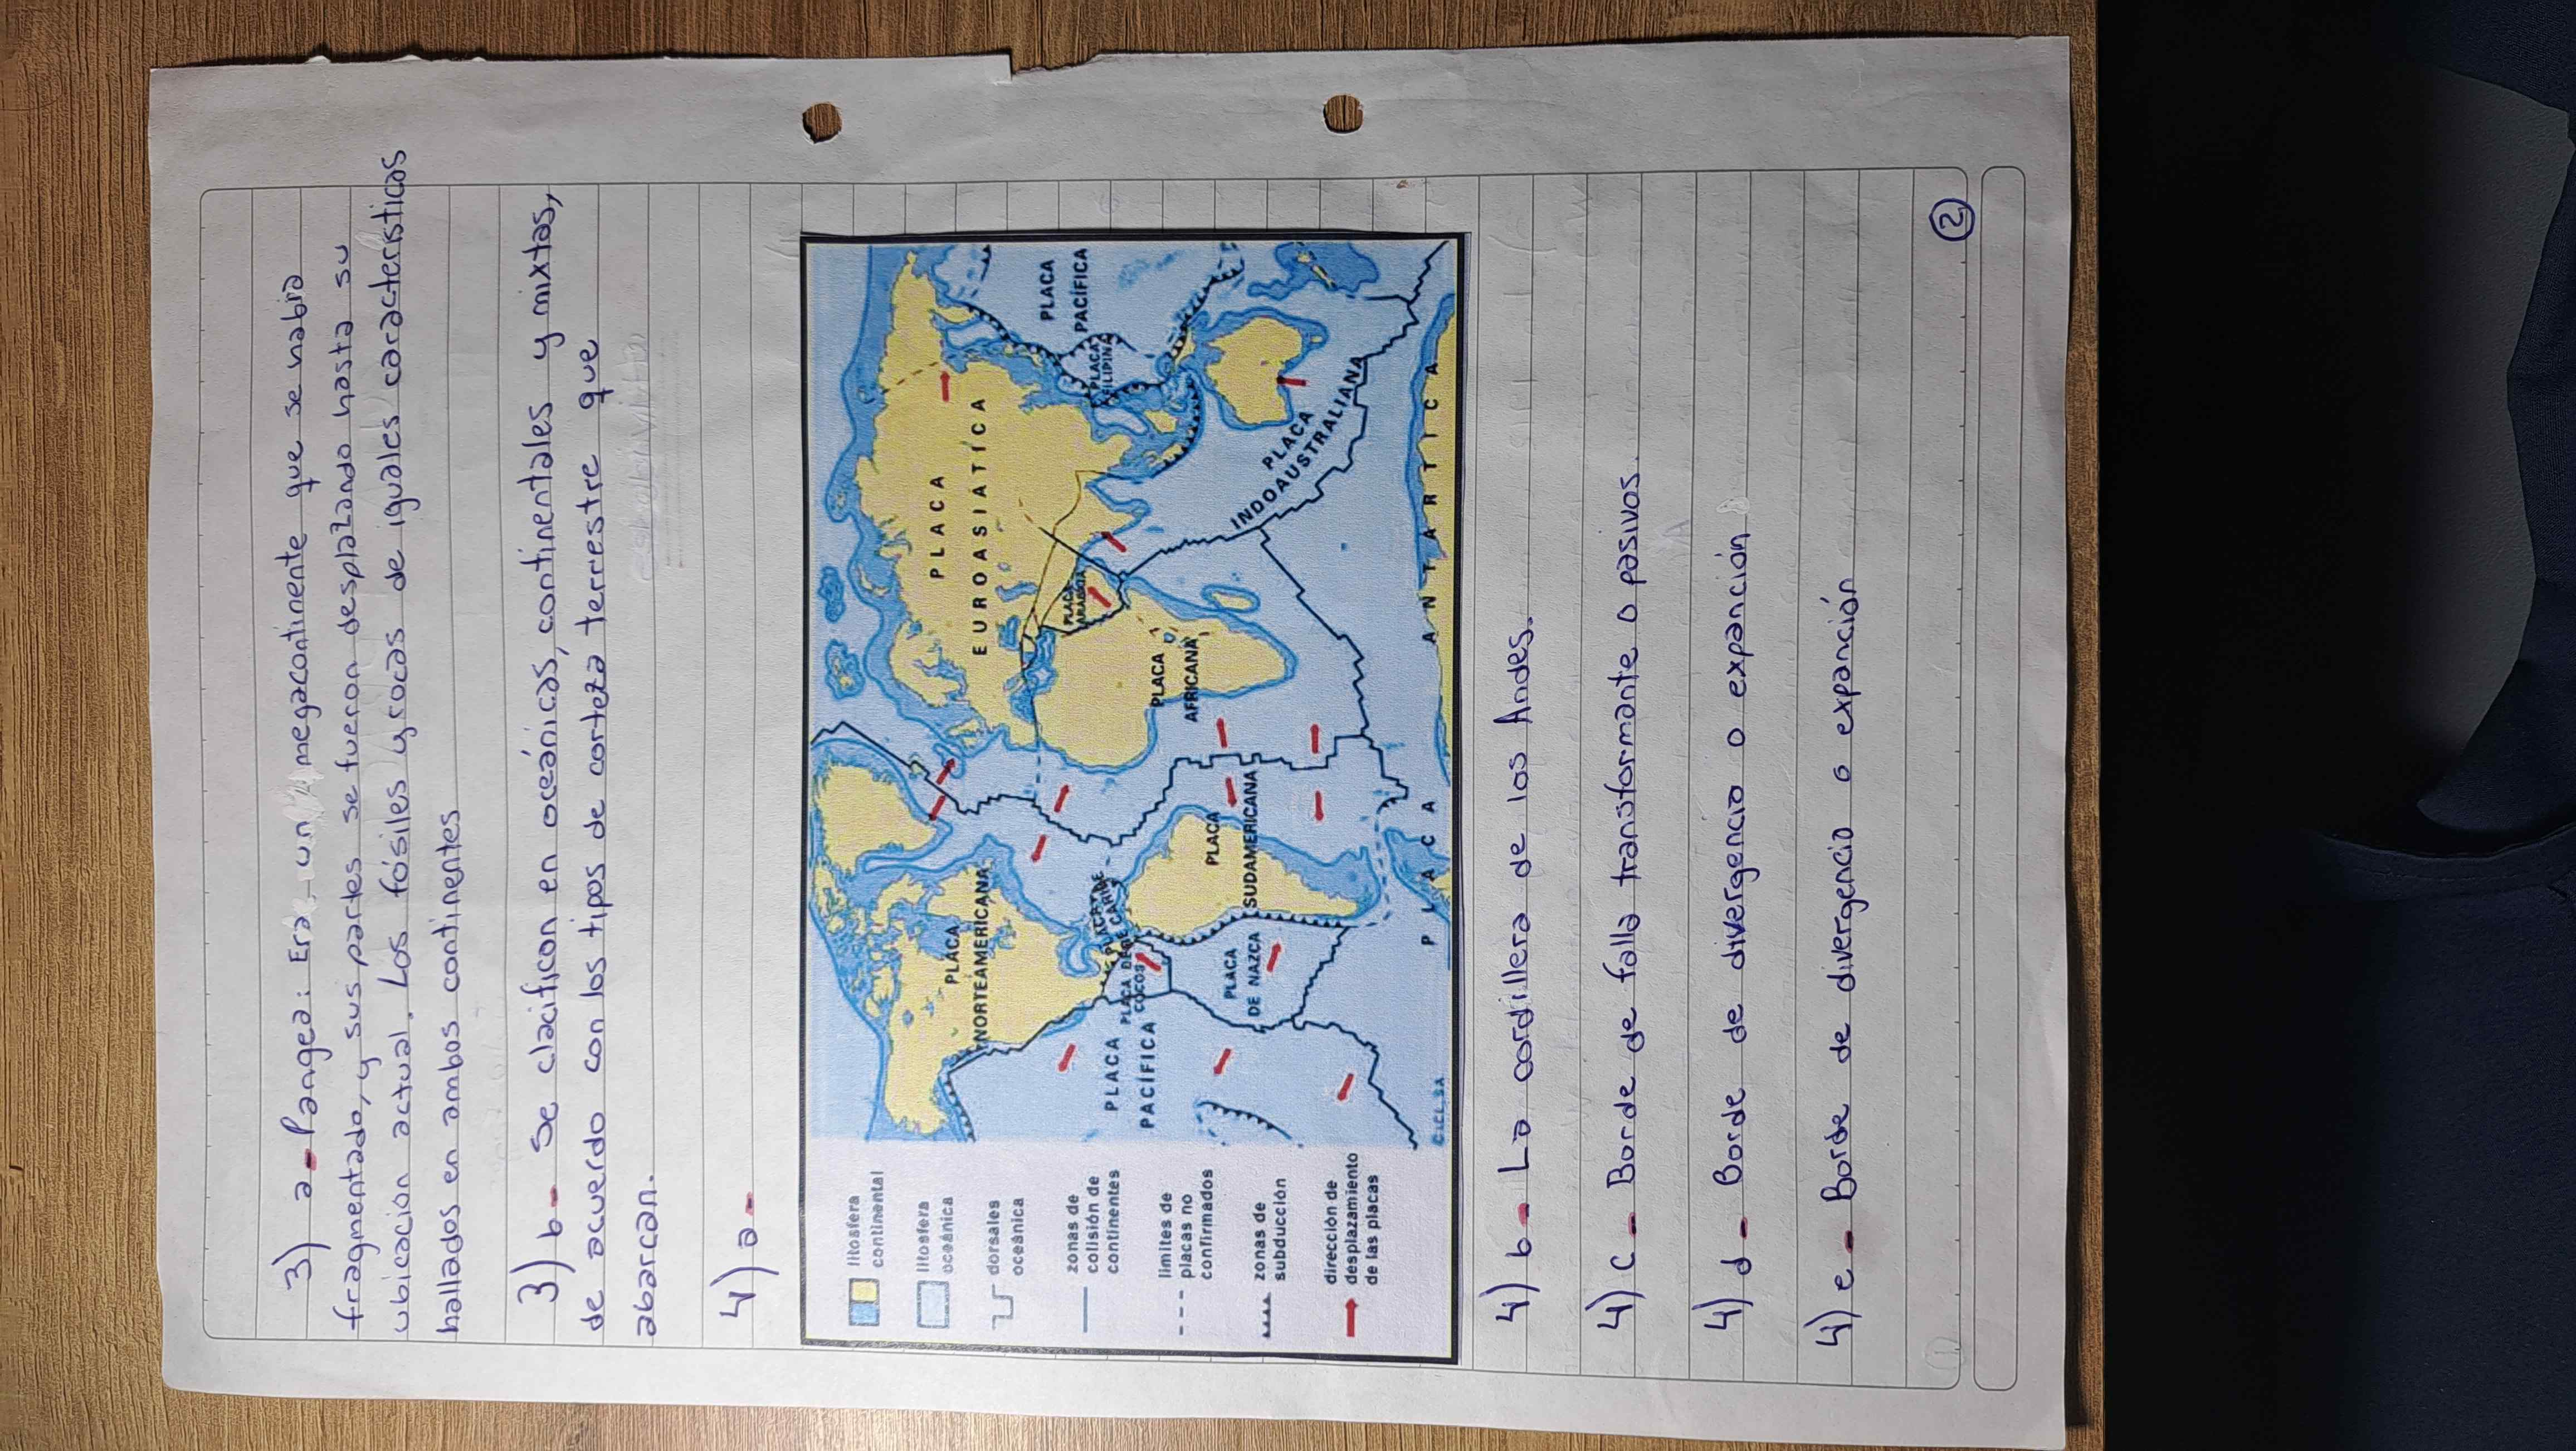 3) a- Pangea: Era un megacontinente que se habia
fragmentado, y sus partes se fueron desplazando hasta su
ubicación actual. Los fósiles y rocas de iguales características
hallados en ambos continentes
3) b- Se clacifican en oceánicas, continentales y mixtas,
de acuerdo con los tipos de corteza terrestre que
abarcan.
4) a-
litosfera
continental
litosfera
oceánica
dorsales
oceánica
zonas de
colisión de
continentes
limites de
placas no
confirmados
zonas de
subducción
dirección de
desplazamiento
de las placas
PLACA
NORTEAMERICANA
PLACA
EUROASIATICA
PLACA
PACÍFICA
PLACA
FILIPINA
PLACA
ARABIGA
PLACA DEL CARIBE
PLACA DE
COCOS
PLACA
PACÍFICA
PLACA
AFRICANA
PLACA
DE NAZCA
PLACA
SUDAMERICANA
PLACA
INDOAUSTRALIANA
PLACA ANTARTICA
C.I.C.L.S.A
4) b- La cordillera de los Andes.
4) c- Borde de falla transformante o pasivos.
4) d- Borde de divergencia o expanción
4) e- Borde de divergencia o expanción
2